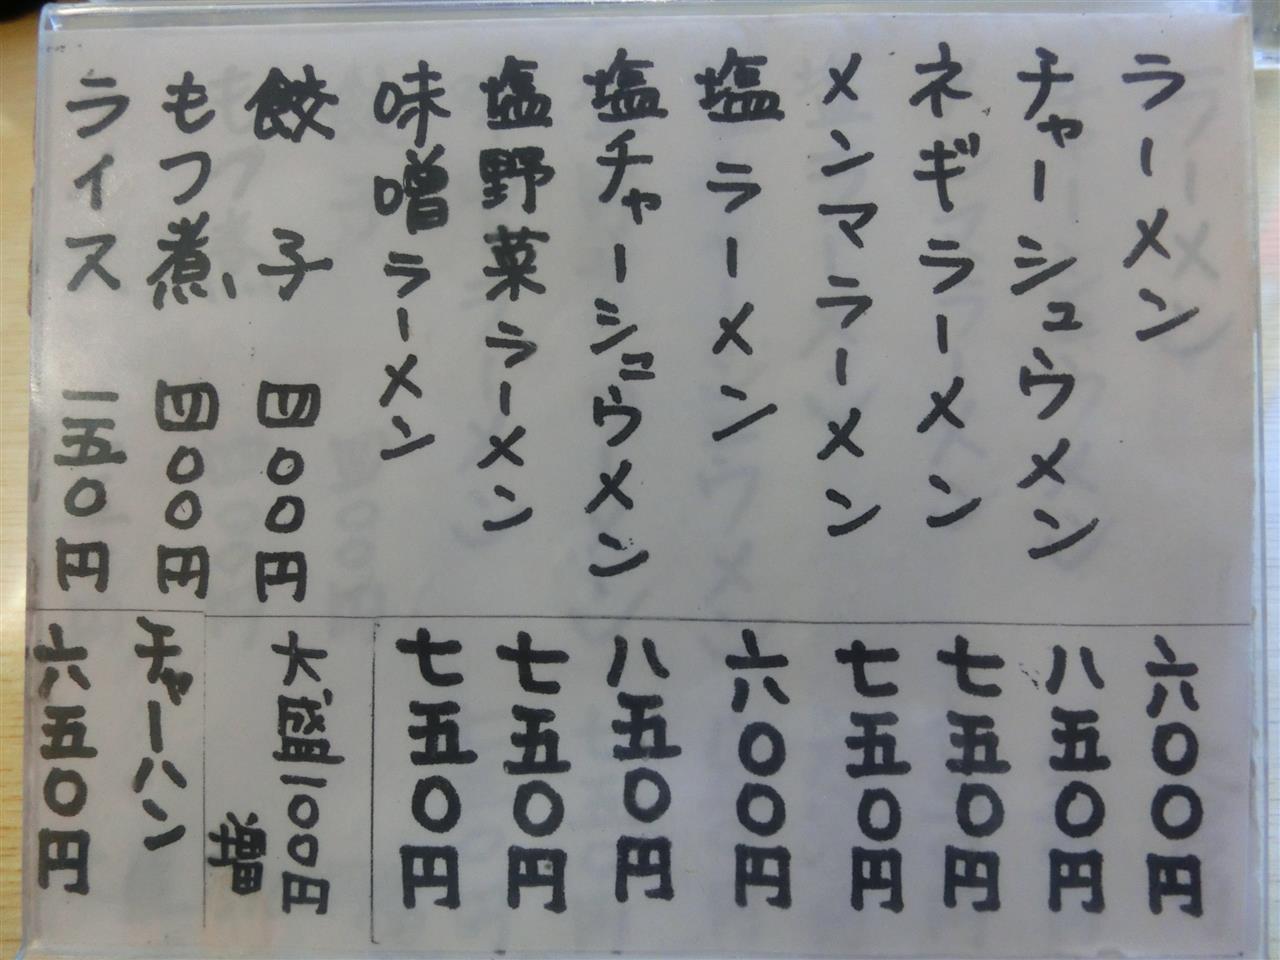 ラーメン 六〇〇円
チャーシュウメン 八五〇円
ネギラーメン 七五〇円
メンマラーメン 七五〇円
塩ラーメン 六〇〇円
塩チャーシュウメン 八五〇円
塩野菜ラーメン 七五〇円
味噌ラーメン 七五〇円
餃子 四〇〇円
もつ煮 四〇〇円
ライス 一五〇円
大盛100円
増
チャーハン
六五〇円